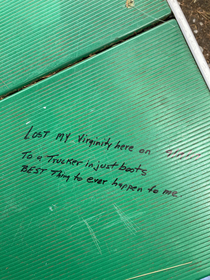 LOST MY Virginity here on
To a Trucker in just boots
BEST Thing to ever happen to me